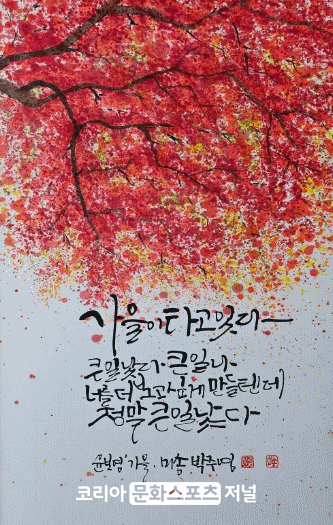 가을이 타고 있다
큰일났다 큰일나
너를 더 보고 싶게 만들텐데
정말 큰일났다
윤보영 '가을
코리아 문화스포츠 저널